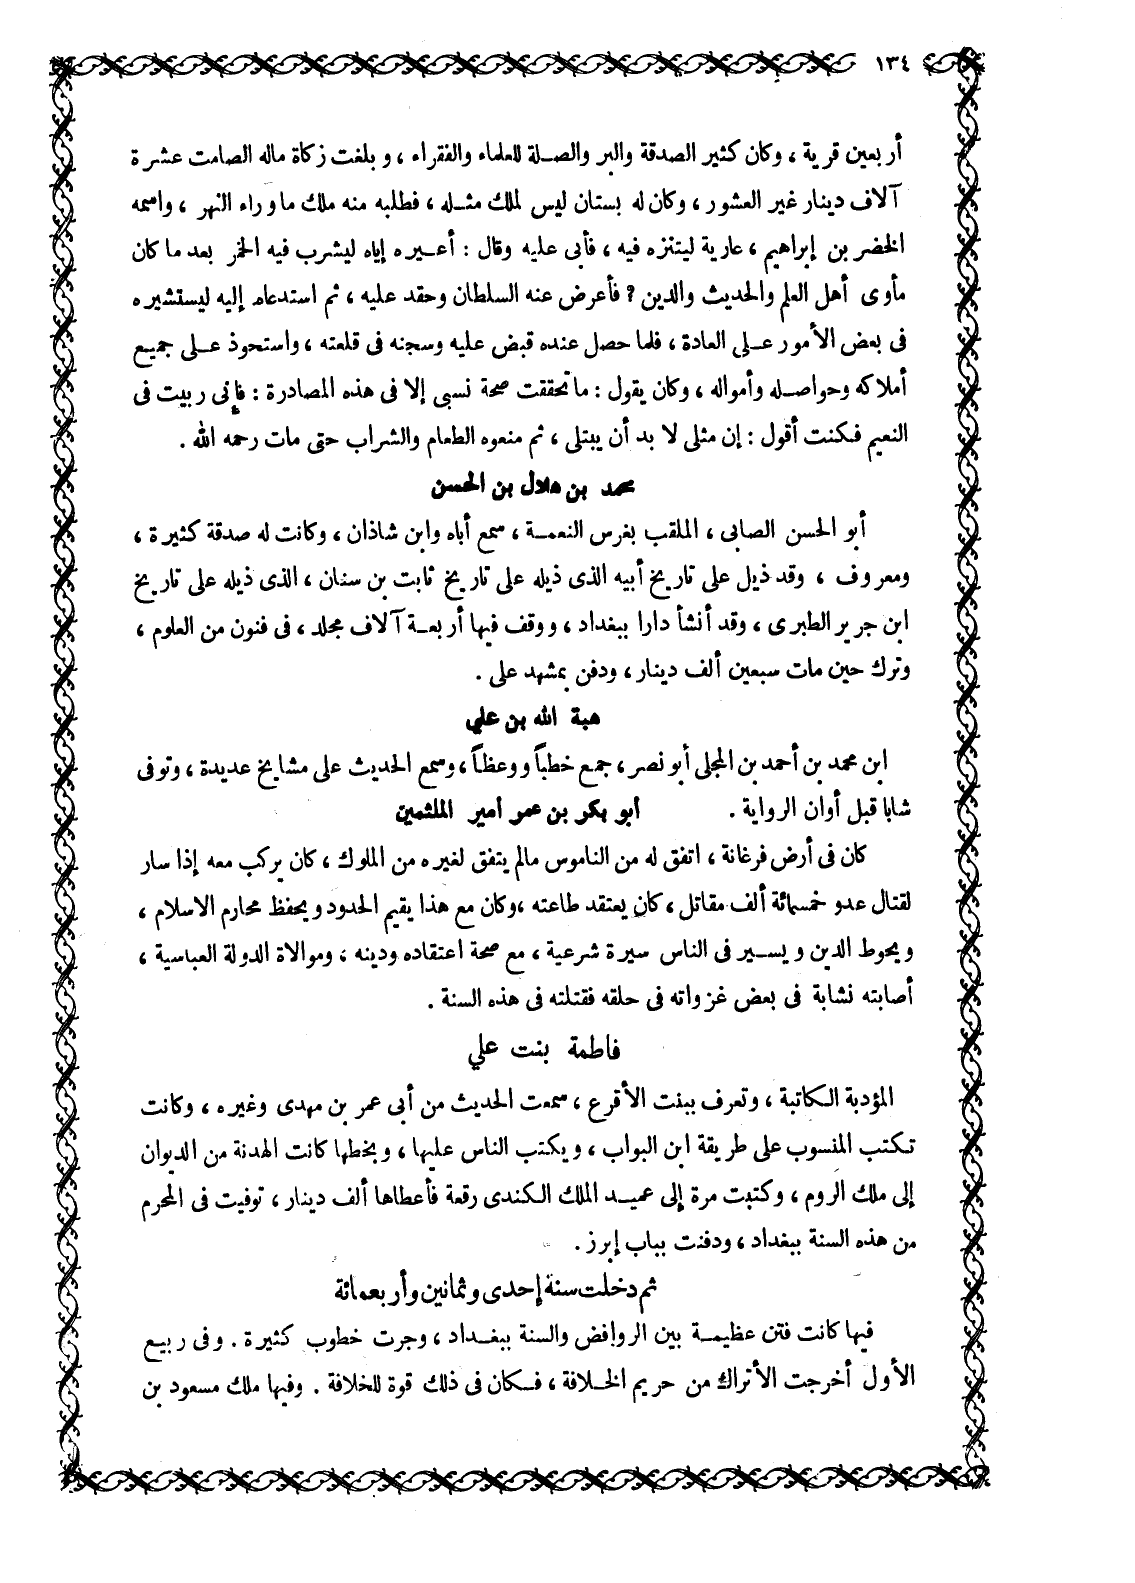 ١٣٤
أربعين قرية ، وكان كثير الصدقة والبر والصلة للعلماء والفقراء ، وبلغت زكاة ماله الصامت عشرة
آلاف دينار غير العشور ، وكان له بستان ليس لملك مثله ، فطلبه منه ملك ما وراء النهر ، واسمه
الخضر بن إبراهيم ، عارية ليتنزه فيه ، فأبى عليه وقال : أعيره إياه ليشرب فيه الخمر بعد ما كان
مأوى أهل العلم والحديث والدين ؟ فأعرض عنه السلطان وحقد عليه ، ثم استدعاه إليه ليستشيره
فى بعض الأمور على العادة ، فلما حصل عنده قبض عليه وسجنه فى قلعته ، واستحوذ على جميع
أملاكه وحواصله وأمواله ، وكان يقول : ما تحققت صحة نسبى إلا فى هذه المصادرة : فإنى ربيت فى
النعيم فكنت أقول : إن مثلى لا بد أن يبتلى ، ثم منعوه الطعام والشراب حتى مات رحمه الله .
محمد بن هلال بن الحسن
أبو الحسن الصابى ، الملقب بغرس النعمة ، سمع أباه وابن شاذان ، وكانت له صدقة كثيرة ،
ومعروف ، وقد ذيل على تاريخ أبيه الذى ذيله على تاريخ ثابت بن سنان ، الذى ذيله على تاريخ
ابن جرير الطبرى ، وقد أنشأ دارا ببغداد ، ووقف فيها أربعة آلاف مجلد ، فى فنون من العلوم ،
وترك حين مات سبعين ألف دينار ، ودفن بمشهد على .
هبة الله بن علي
ابن محمد بن أحمد بن المجلى أبو نصر ، جمع خطباً ووعظاً ، وسمع الحديث على مشايخ عديدة ، وتوفى
شابا قبل أوان الرواية . أبو بكر بن عمر أمير الملثمين
كان فى أرض فرغانة ، اتفق له من الناموس مالم يتفق لغيره من الملوك ، كان يركب معه إذا سار
لقتال عدو خمسمائة ألف مقاتل ، كان يعتقد طاعته ، وكان مع هذا يقيم الحدود ويحفظ محارم الاسلام ،
ويحوط الدين ويسير فى الناس سيرة شرعية ، مع صحة اعتقاده ودينه ، وموالاة الدولة العباسية ،
أصابته نشابة فى بعض غزواته فى حلقه فقتلته فى هذه السنة .
فاطمة بنت علي
المؤدبة الكاتبة ، وتعرف ببنت الأقرع ، سمعت الحديث من أبى عمر بن مهدى وغيره ، وكانت
تكتب المنسوب على طريقة ابن البواب ، ويكتب الناس عليها ، وبخطها كانت الهدنة من الديوان
إلى ملك الروم ، وكتبت مرة إلى عميد الملك الكندى رقعة فأعطاها ألف دينار ، توفيت فى المحرم
من هذه السنة ببغداد ، ودفنت بباب إبرز .
ثم دخلت سنة إحدى وثمانين وأربعمائة
فيها كانت فتن عظيمة بين الروافض والسنة ببغداد ، وجرت خطوب كثيرة . وفى ربيع
الأول أخرجت الأتراك من حريم الخلافة ، فكان فى ذلك قوة للخلافة . وفيها ملك مسعود بن